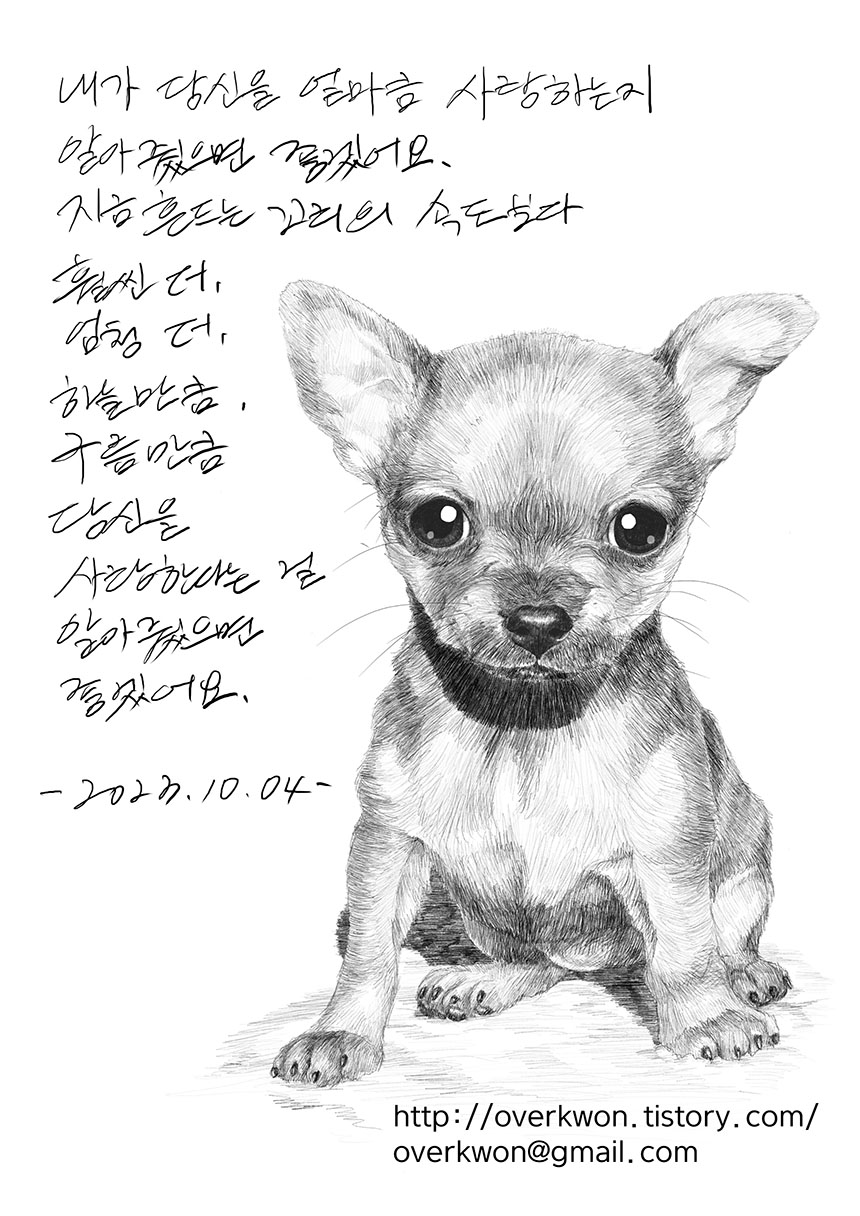 내가 당신을 얼마큼 사랑하는지
알아줬으면 좋겠어요.
지금 흔드는 꼬리의 속도보다
훨씬 더,
엄청 더,
하늘만큼,
구름만큼
당신을
사랑한다는 걸
알아줬으면
좋겠어요.
-2023.10.04-
http://overkwon.tistory.com/
overkwon@gmail.com